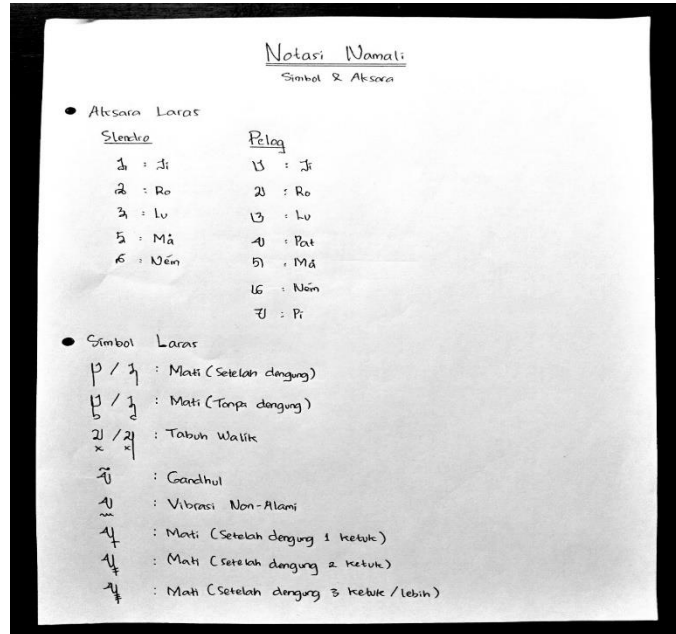 Notasi Namali
Simbol & Aksara
Aksara Laras
Slendro
Pelog
: Ji
: Ji
: Ro
: Ro
: Lu
: Lu
: Må
: Pat
: Ném
: Må
: Ném
: Pi
Simbol Laras
/ : Mati (Setelah dengung)
/ : Mati (Tanpa dengung)
/ : Tabuh Walik
: Gandhul
: Vibrasi Non-Alami
: Mati (Setelah dengung 1 ketuk)
: Mati (Setelah dengung 2 ketuk)
: Mati (Setelah dengung 3 ketuk / lebih)